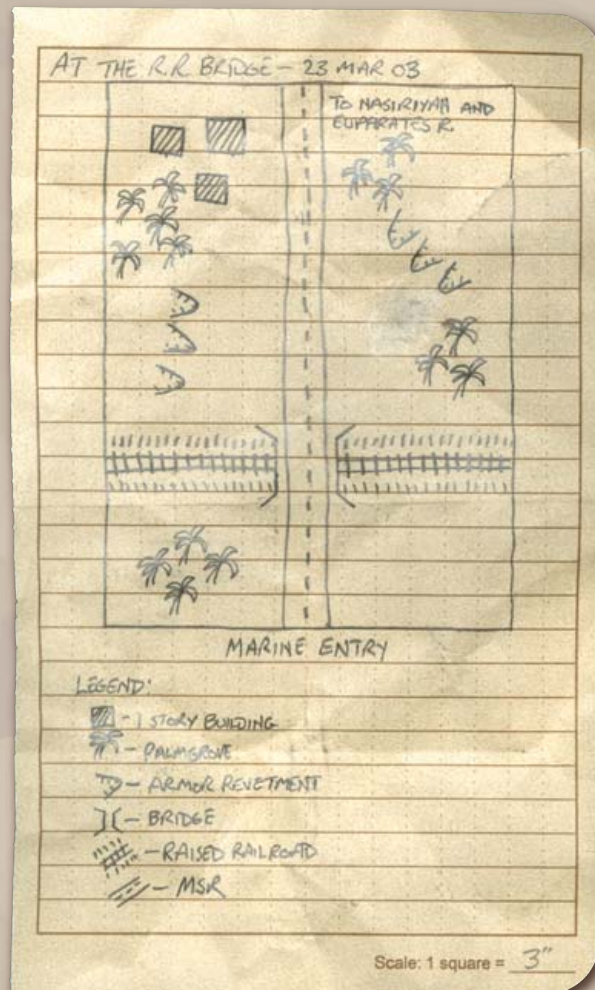 AT THE R.R. BRIDGE - 23 MAR 03
TO NASIRIYAH AND
EUPHRATES R.
MARINE ENTRY
LEGEND:
- 1 STORY BUILDING
- PALMGROVE
- ARMOR REVETMENT
- BRIDGE
- RAISED RAILROAD
- MSR
Scale: 1 square = 3"